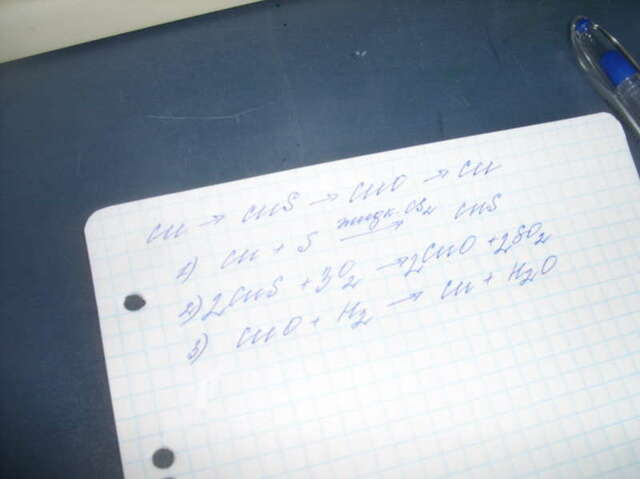 Cu → CuS → CuO → Cu
1) Cu + S жидк. CS₂ → CuS
2) 2CuS + 3O₂ → 2CuO + 2SO₂
3) CuO + H₂ → Cu + H₂O